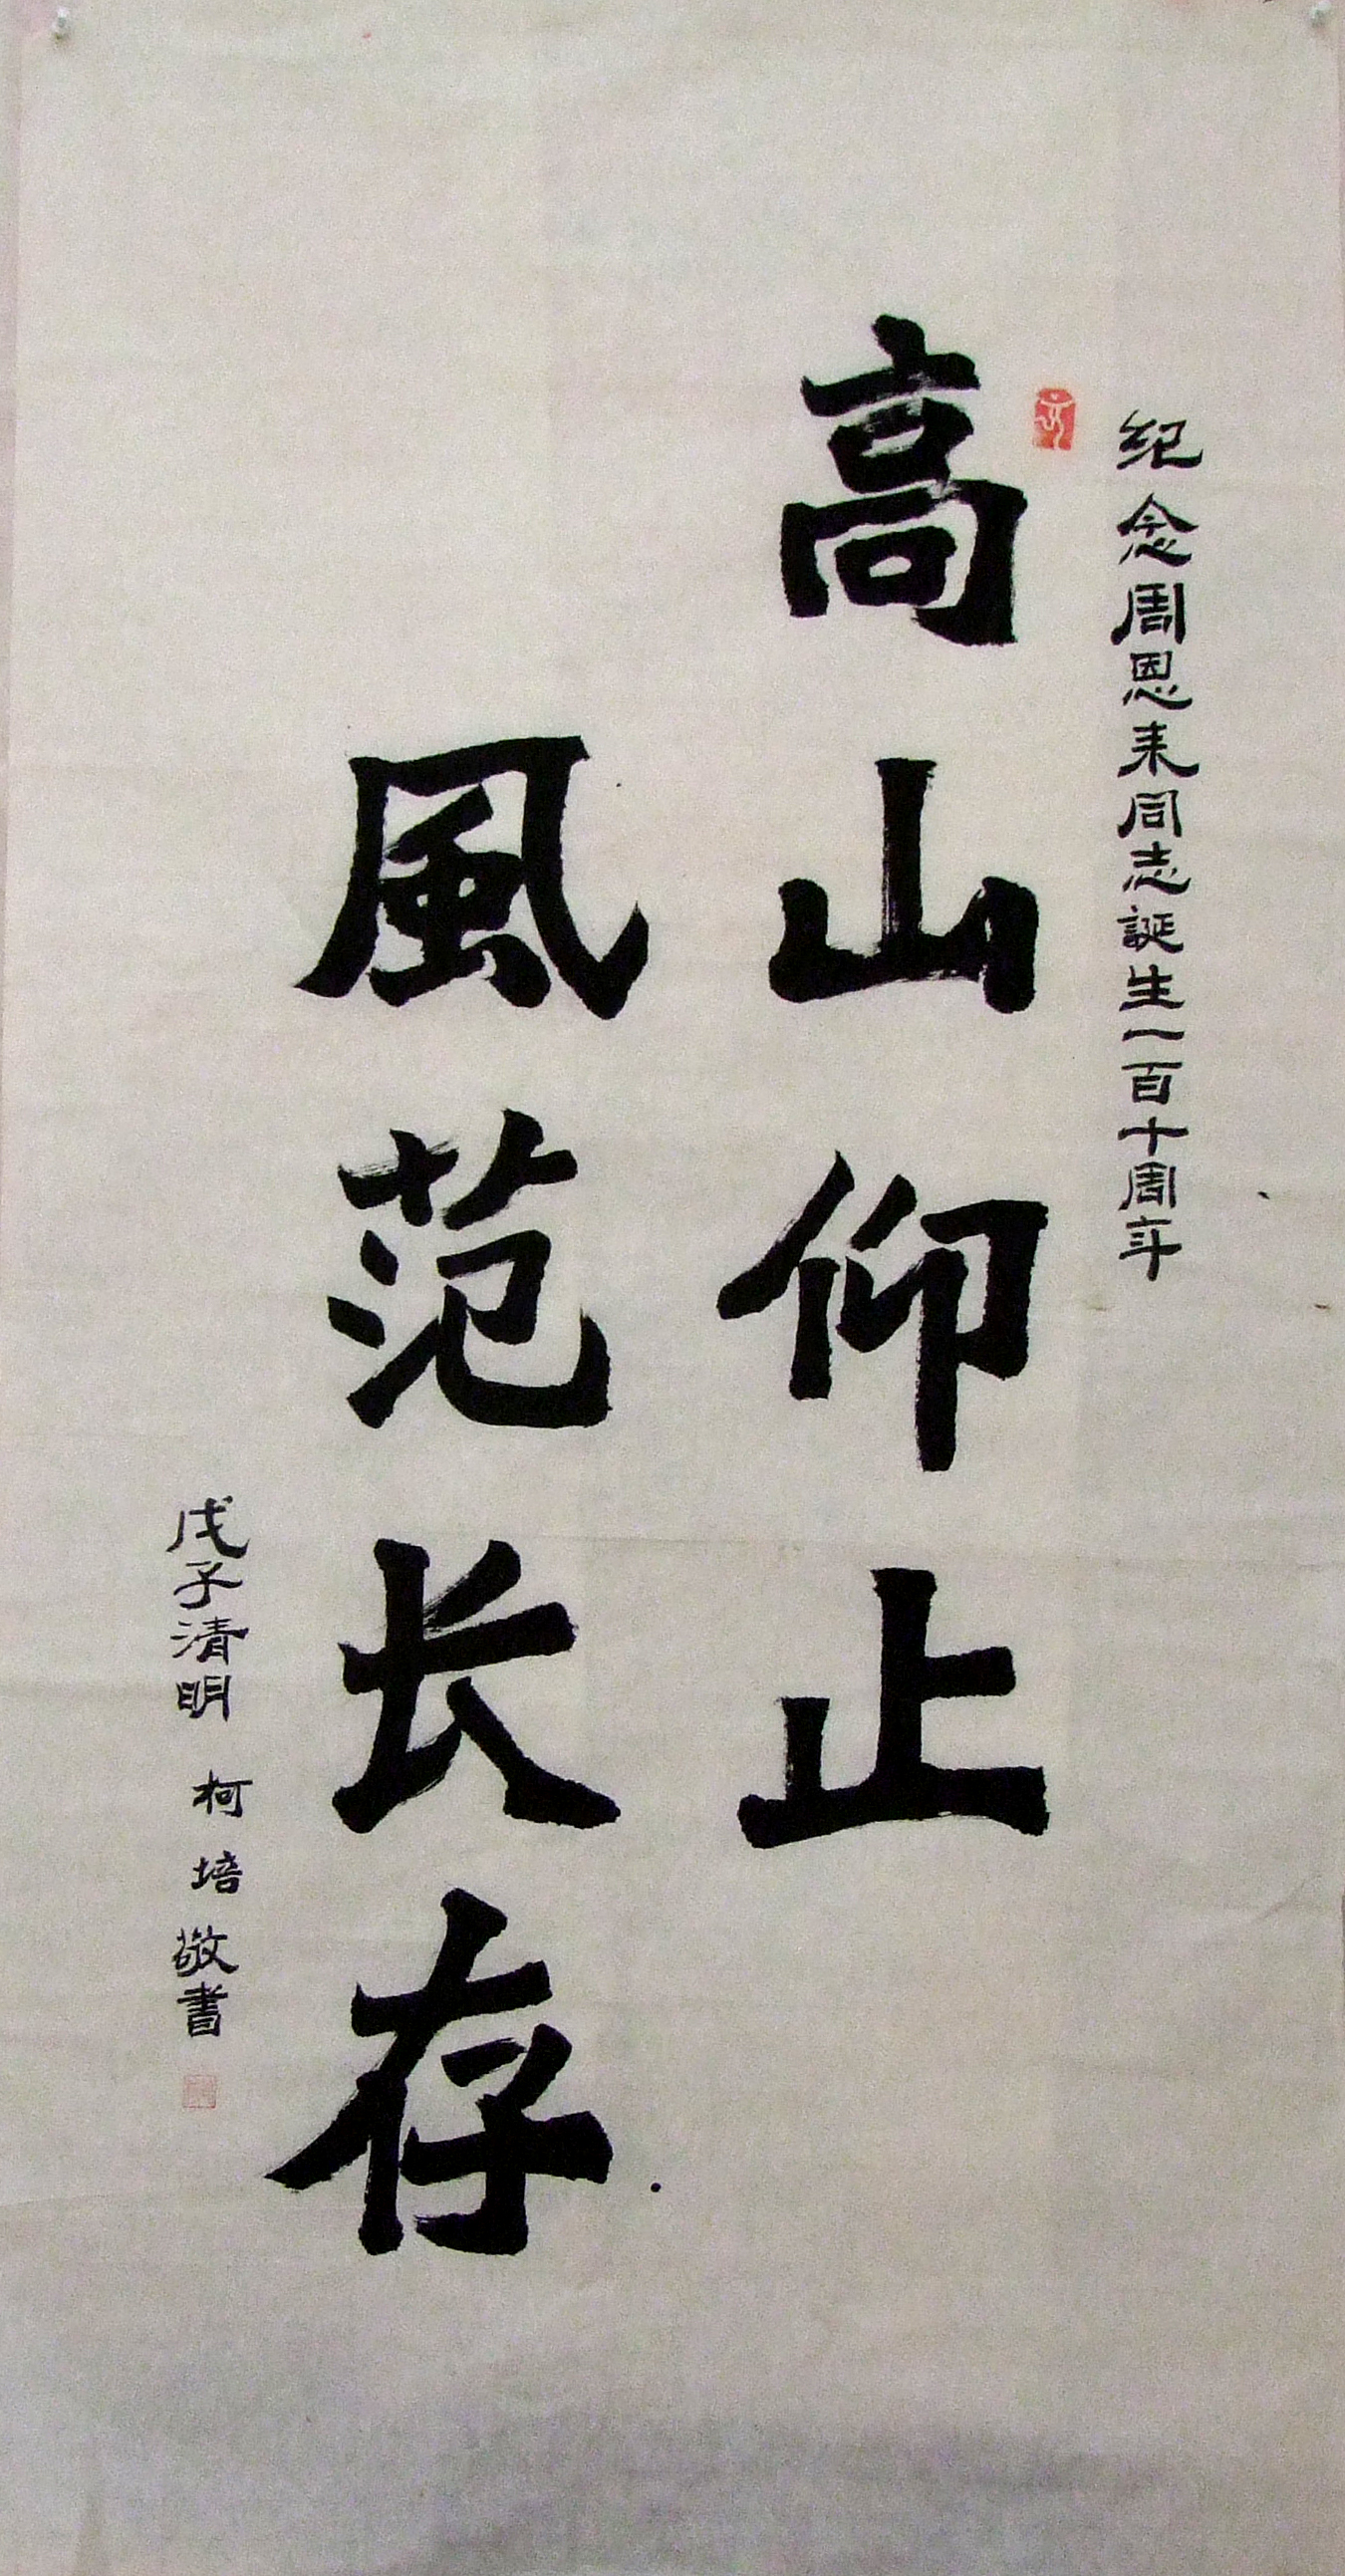 纪念周恩来同志誕生一百十周年
高山仰止
風范长存
戊子清明 柯培敬書